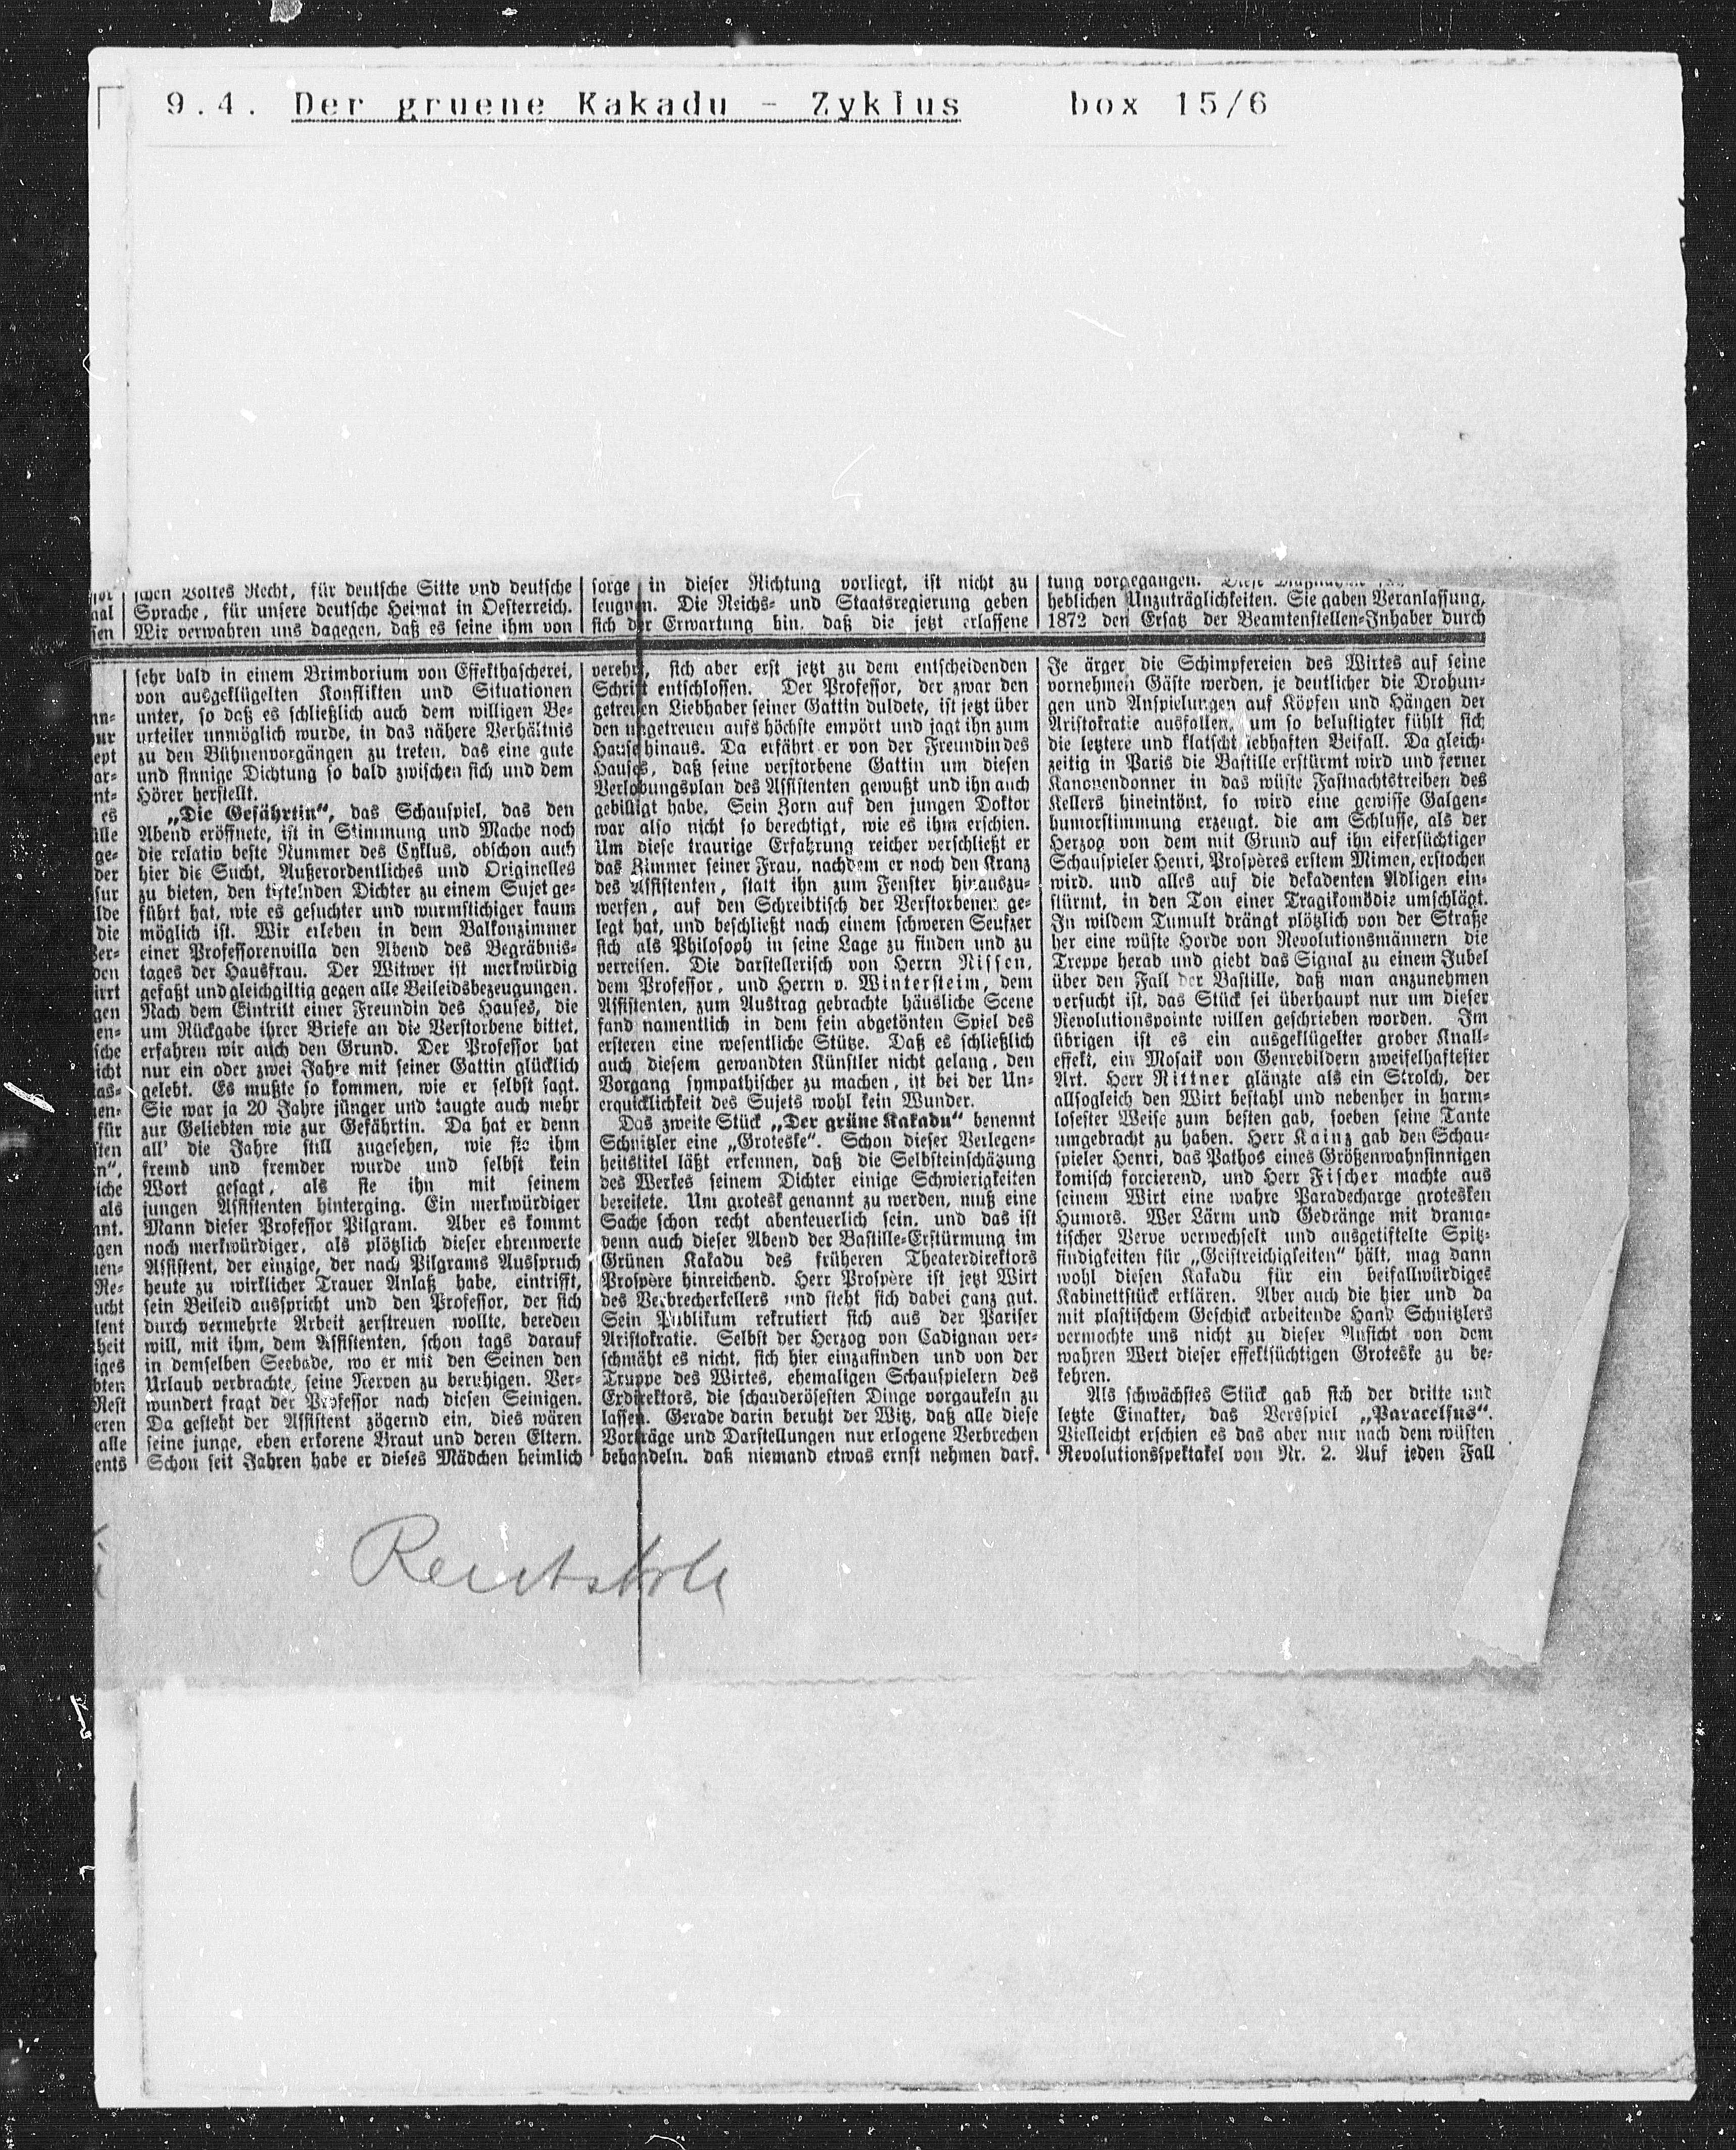 9.4. Der gruene Kakadu - Zyklus box 15/6
aal
sen
Recht, für deutsche Sitte und deutsche
Sprache, für unsere deutsche Heimat in Oesterreich.
Wir verwahren uns dagegen, daß es seine ihm von
sorge in dieser Richtung vorliegt, ist nicht zu
leugnen. Die Reichs- und Staatsregierung geben
sich der Erwartung hin, daß die jetzt erlassene
tung vorgegangen.
heblichen Unzuträglichkeiten. Sie gaben Veranlassung,
1872 den Ersatz der Beamtenstellen-Inhaber durch
nn-
ur
ept
ar-
nt-
es
ülle
ge-
der
sur
lde
die
Ver-
den
irrt
gen
en-
sche
icht
as-
en-
für
sten
n",
iche
als
nnt.
gen
en-
Re-
ucht
lent
heit
iges
bten
Rest
eren
alle
ents
sehr bald in einem Brimborium von Effekthascherei,
von ausgeklügelten Konflikten und Situationen
unter, so daß es schließlich auch dem willigen Be-
urteiler unmöglich wurde, in das nähere Verhältnis
zu den Bühnenvorgängen zu treten, das eine gute
und sinnige Dichtung so bald zwischen sich und dem
Hörer herstellt.
„Die Gefährtin“, das Schauspiel, das den
Abend eröffnete, ist in Stimmung und Mache noch
die relativ beste Nummer des Cyklus, obschon auch
hier die Sucht, Außerordentliches und Originelles
zu bieten, den tiftelnden Dichter zu einem Sujet ge-
führt hat, wie es gesuchter und wurmstichiger kaum
möglich ist. Wir erleben in dem Balkonzimmer
einer Professorenvilla den Abend des Begräbnis-
tages der Hausfrau. Der Witwer ist merkwürdig
gefaßt und gleichgiltig gegen alle Beileidsbezeugungen.
Nach dem Eintritt einer Freundin des Hauses, die
um Rückgabe ihrer Briefe an die Verstorbene bittet,
erfahren wir auch den Grund. Der Professor hat
nur ein oder zwei Jahre mit seiner Gattin glücklich
gelebt. Es mußte so kommen, wie er selbst sagt.
Sie war ja 20 Jahre jünger und taugte auch mehr
zur Geliebten wie zur Gefährtin. Da hat er denn
all' die Jahre still zugesehen, wie sie ihm
fremd und fremder wurde und selbst kein
Wort gesagt, als sie ihn mit seinem
jungen Assistenten hinterging. Ein merkwürdiger
Mann dieser Professor Pilgram. Aber es kommt
noch merkwürdiger, als plötzlich dieser ehrenwerte
Assistent, der einzige, der nach Pilgrams Ausspruch
heute zu wirklicher Trauer Anlaß habe, eintrifft,
sein Beileid ausspricht und den Professor, der sich
durch vermehrte Arbeit zerstreuen wollte, bereden
will, mit ihm, dem Assistenten, schon tags darauf
in demselben Seebade, wo er mit den Seinen den
Urlaub verbrachte, seine Nerven zu beruhigen. Ver-
wundert fragt der Professor nach diesen Seinigen.
Da gesteht der Assistent zögernd ein, dies wären
seine junge, eben erkorene Braut und deren Eltern.
Schon seit Jahren habe er dieses Mädchen heimlich
verehrt, sich aber erst jetzt zu dem entscheidenden
Schritt entschlossen. Der Professor, der zwar den
getreuen Liebhaber seiner Gattin duldete, ist jetzt über
den ungetreuen aufs höchste empört und jagt ihn zum
Hause hinaus. Da erfährt er von der Freundin des
Hauses, daß seine verstorbene Gattin um diesen
Verlobungsplan des Assistenten gewußt und ihn auch
gebilligt habe. Sein Zorn auf den jungen Doktor
war also nicht so berechtigt, wie es ihm erschien.
Um diese traurige Erfahrung reicher verschließt er
das Zimmer seiner Frau, nachdem er noch den Kranz
des Assistenten, statt ihn zum Fenster hinauszu-
werfen, auf den Schreibtisch der Verstorbenen ge-
legt hat, und beschließt nach einem schweren Seufzer
sich als Philosoph in seine Lage zu finden und zu
verreisen. Die darstellerisch von Herrn Nissen,
dem Professor, und Herrn v. Winterstein, dem
Assistenten, zum Austrag gebrachte häusliche Scene
fand namentlich in dem fein abgetönten Spiel des
ersteren eine wesentliche Stütze. Daß es schließlich
auch diesem gewandten Künstler nicht gelang, den
Vorgang sympathischer zu machen, ist bei der Un-
erquicklichkeit des Sujets wohl kein Wunder.
Das zweite Stück „Der grüne Kakadu“ benennt
Schnitzler eine „Groteske“. Schon dieser Verlegen-
heitstitel läßt erkennen, daß die Selbsteinschäzung
des Werkes seinem Dichter einige Schwierigkeiten
bereitete. Um grotesk genannt zu werden, muß eine
Sache schon recht abenteuerlich sein, und das ist
denn auch dieser Abend der Bastille-Erstürmung im
Grünen Kakadu des früheren Theaterdirektors
Prospère hinreichend. Herr Prospère ist jetzt Wirt
des Verbrecherkellers und steht sich dabei ganz gut.
Sein Publikum rekrutiert sich aus der Pariser
Aristokratie. Selbst der Herzog von Cadignan ver-
schmäht es nicht, sich hier einzufinden und von der
Truppe des Wirtes, ehemaligen Schauspielern des
Exdirektors, die schauderösesten Dinge vorgaukeln zu
lassen. Gerade darin beruht der Witz, daß alle diese
Vorträge und Darstellungen nur erlogene Verbrechen
behandeln, daß niemand etwas ernst nehmen darf.
Je ärger die Schimpfereien des Wirtes auf seine
vornehmen Gäste werden, je deutlicher die Drohun-
gen und Anspielungen auf Köpfen und Hängen der
Aristokratie ausfallen, um so belustigter fühlt sich
die letztere und klatscht lebhaften Beifall. Da gleich-
zeitig in Paris die Bastille erstürmt wird und ferner
Kanonendonner in das wüste Fastnachtstreiben des
Kellers hineintönt, so wird eine gewisse Galgen-
humorstimmung erzeugt, die am Schlusse, als der
Herzog von dem mit Grund auf ihn eifersüchtigen
Schauspieler Henri, Prospères erstem Mimen, erstochen
wird, und alles auf die dekadenten Adligen ein-
stürmt, in den Ton einer Tragikomödie umschlägt.
In wildem Tumult drängt plötzlich von der Straße
her eine wüste Horde von Revolutionsmännern die
Treppe herab und giebt das Signal zu einem Jubel
über den Fall der Bastille, daß man anzunehmen
versucht ist, das Stück sei überhaupt nur um dieser
Revolutionspointe willen geschrieben worden. Im
übrigen ist es ein ausgeklügelter grober Knall-
effekt, ein Mosaik von Genrebildern zweifelhaftester
Art. Herr Rittner glänzte als ein Strolch, der
allsogleich den Wirt bestahl und nebenher in harm-
losester Weise zum besten gab, soeben seine Tante
umgebracht zu haben. Herr Kainz gab den Schau-
spieler Henri, das Pathos eines Größenwahnsinnigen
komisch forcierend, und Herr Fischer machte aus
seinem Wirt eine wahre Paradecharge grotesken
Humors. Wer Lärm und Gedränge mit drama-
tischer Verve verwechselt und ausgetiftelte Spitz-
findigkeiten für „Geistreichigleiten“ hält, mag dann
wohl diesen Kakadu für ein beifallwürdiges
Kabinettstück erklären. Aber auch die hier und da
mit plastischem Geschick arbeitende Hand Schnitzlers
vermochte uns nicht zu dieser Ansicht von dem
wahren Wert dieser effektsüchtigen Groteske zu be-
kehren.
Als schwächstes Stück gab sich der dritte und
letzte Einakter, das Versspiel „Paracelsus“.
Vielleicht erschien es das aber nur nach dem wüsten
Revolutionsspektakel von Nr. 2. Auf jeden Fall